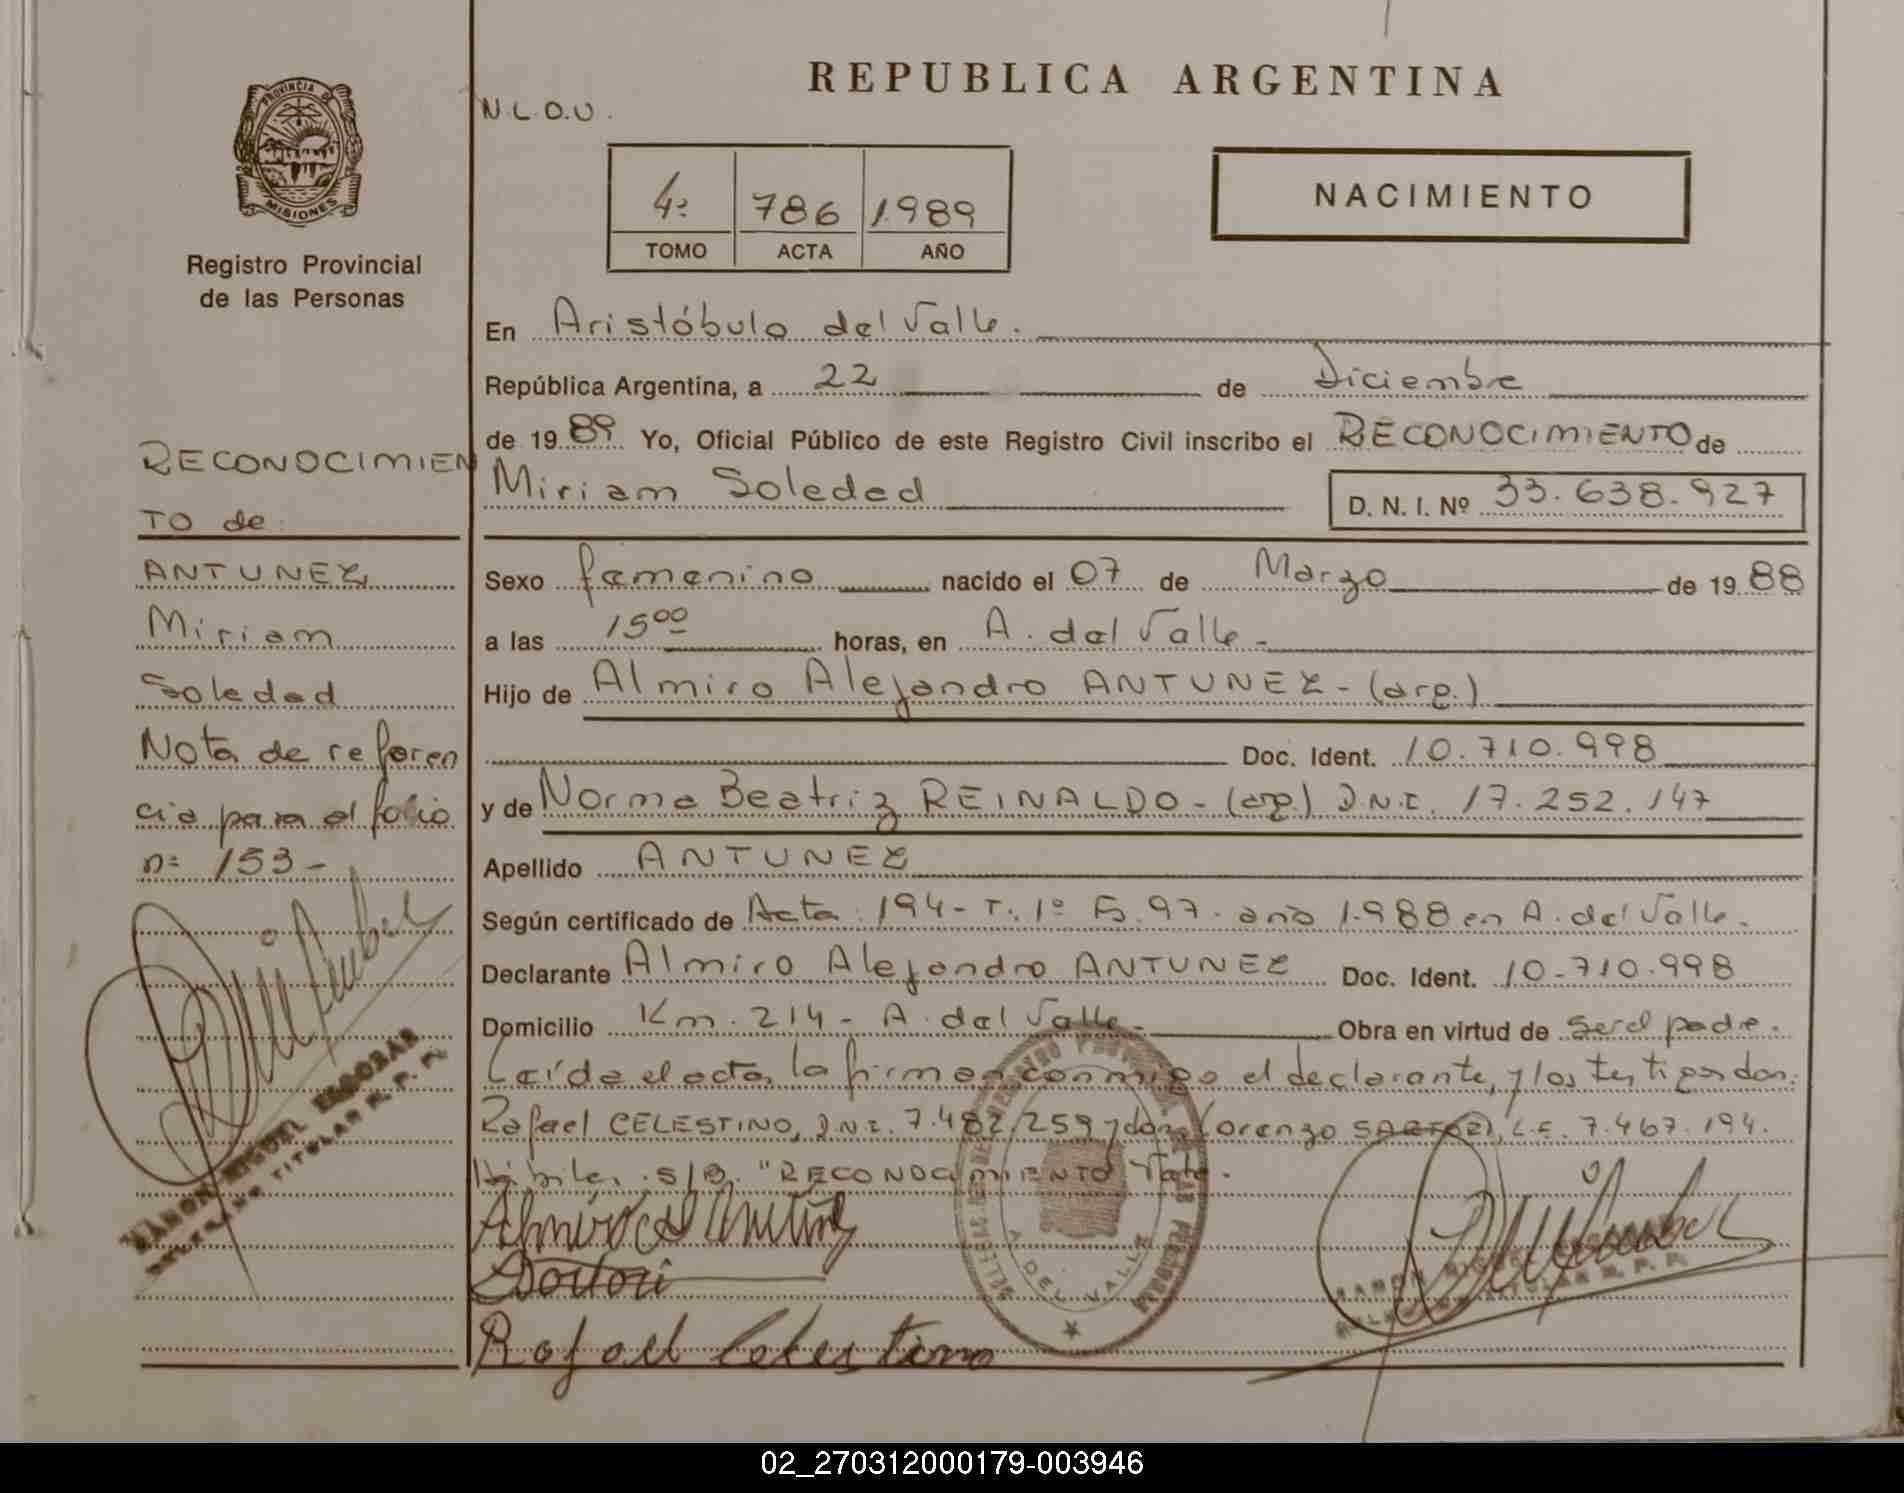 REPUBLICA ARGENTINA
N.L.O.U.
PROVINCIA DE MISIONES
Registro Provincial
de las Personas
4º 786 1989
TOMO ACTA AÑO
NACIMIENTO
En Aristóbulo del Valle.
República Argentina, a 22 de Diciembre
de 1989 Yo, Oficial Público de este Registro Civil inscribo el RECONOCIMIENTO de
Miriam Soledad D. N. I. Nº 33.638.927
Sexo femenino nacido el 07 de Marzo de 1988
a las 15 00 horas, en A. del Valle -
Hijo de Almiro Alejandro ANTUNEZ - (arg.)
Doc. Ident. 10.710.998
y de Norma Beatriz REINALDO - (arg.) D.N.I. 17.252.147
Apellido ANTUNEZ
Según certificado de Acta 194 - T. 1º F. 97. año 1.988 en A. del Valle.
Declarante Almiro Alejandro ANTUNEZ Doc. Ident. 10-710.998
Domicilio Km. 214 - A. del Valle - Obra en virtud de ser el padre.
Leída el acta, la firman conmigo el declarante, y los testigos don:
Rafael CELESTINO, D.N.I. 7.482.259 y don Lorenzo SARTORI, L.E. 7.467.194.
Hábiles. S/B. "RECONOCIMIENTO Vale.
Sartori
Rafael Celestino
A. DEL VALLE
RECONOCIMIEN
TO de:
ANTUNEZ
Miriam
Soledad
Nota de referen
cia para el folio
nº 153 -
RAMON MIGUEL ESCOBAR
TITULAR R. P. P.
RAMON MIGUEL
TITULAR R. P. P.
02_270312000179-003946